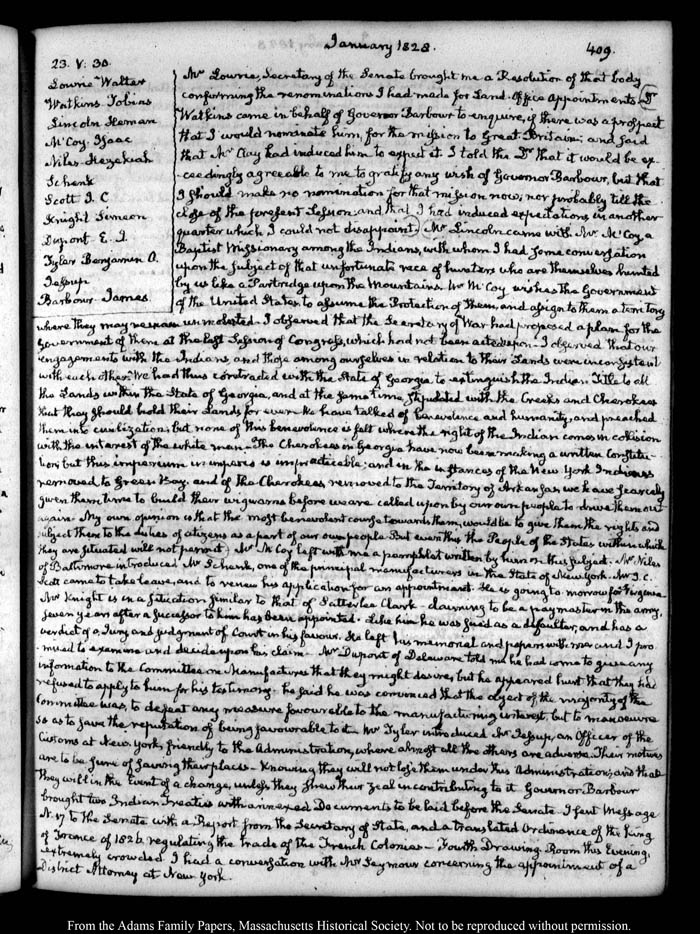 January 1828.
409.
23. V: 30.
Lowrie Walter
Watkins Tobias
Lincoln Heman
McCoy Isaac
Niles Hezekiah
Schenk
Scott I. C
Knight Simeon
Dupont E. I.
Tyler Benjamin O.
Jessup
Barbour James.
Mr Lowrie, Secretary of the Senate brought me a Resolution of that body
confirming the renominations I had made for Land-Office appointments. Dr
Watkins came in behalf of Governor Barbour to enquire, if there was a prospect
that I would nominate him, for the mission to Great Britain; and said
that Mr Clay had induced him to expect it. I told the Dr that it would be ex-
-ceedingly agreeable to me to gratify any wish of Governor Barbour, but that
I should make no nomination for that mission now; nor probably till the
close of the present Session, and that I had induced expectations in another
quarter which I could not disappoint. Mr Lincoln came with Mr McCoy, a
Baptist Missionary among the Indians, with whom I had some conversation
upon the subject of that unfortunate race of hunters who are themselves hunted
by us like a Partridge upon the Mountains. Mr McCoy wishes the Government
of the United States to assume the Protection of them, and assign to them a territory
where they may remain unmolested. I observed that the Secretary of War had proposed a plan for the
Government of them at the last Session of Congress, which had not been acted upon. I observed that our
engagements with the Indians and those among ourselves in relation to their Lands were inconsistent
with each other. We had thus contracted with the State of Georgia to extinguish the Indian Title to all
the Lands within the State of Georgia, and at the same time, stipulated with the Creeks and Cherokees
that they should hold their Lands for ever. We have talked of benevolence and humanity, and preached
them into civilization, but none of this benevolence is felt where the right of the Indian comes in colision
with the interest of the white man. The Cherokees in Georgia have now been making a written Constitu-
-tion; but this imperium in imperio is impracticable; and in the instances of the New York Indians
removed to Green Bay, and of the Cherokees removed to the Territory of Arkansas, we have scarcely
given them time to build their wigwams before we are called upon by our own people to drive them out
again. My own opinion is that the most benevolent course towards them, would be to give them the rights and
subject them to the duties of citizens as a part of our own people. But even this the People of the States within which
they are situated will not permit. Mr McCoy left with me a pamphlet written by him on this subject. Mr Niles
of Baltimore introduced Mr Schenk, one of the principal manufacturers in the State of New York. Mr I. C.
Scott came to take leave, and to renew his application for an appointment. He is going tomorrow for Virginia.
Mr Knight is in a situation similar to that of Satterlee Clark—claiming to be a paymaster in the army,
seven years after a successor to him has been appointed. Like him he was sued as a defaulter, and has a
verdict of a Jury and judgment of Court in his favour. He left his memorial and papers with me and I pro-
-mised to examine and decide upon his claim. Mr Dupont of Delaware told me he had come to give any
information to the Committee on Manufactures that they might desire, but he appeared hurt that they had
refused to apply to him for his testimony. he said he was convinced that the object of the majority of the
Committee was, to defeat any measure favourable to the manufacturing interest, but to manoeuvre
so as to save the reputation of being favourable to it. Mr Tyler introduced Mr Jessup, an Officer of the
Customs at New York, friendly to the Administration, where almost all the others are adverse. Their motives
are to be sure of saving their places. Knowing they will not lose them under this Administration; and that
they will in the Event of a change, unless they shew their zeal in contributing to it. Governor Barbour
brought two Indian Treaties with annexed Documents to be laid before the Senate. I sent Message
N. 17 to the Senate with a Report from the Secretary of State, and a translated Ordinance of the King
of France of 1826 regulating the trade of the French Colonies—Fourth Drawing Room this Evening,
extremely crowded. I had a conversation with Mr Seymour concerning the appointment of a
District Attorney at New York.
From the Adams Family Papers, Massachusetts Historical Society. Not to be reproduced without permission.